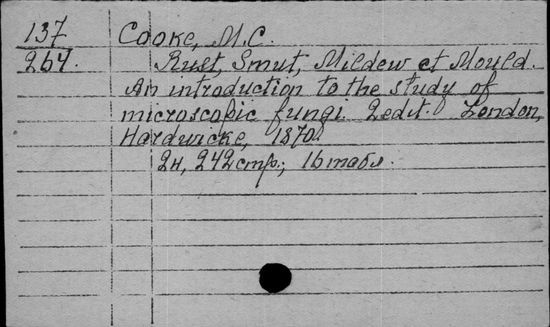 137
264.
Cooke, M.C.
Rust, Smut, Mildew et Mould.
An introduction to the study of
microscopic fungi. 2edit. London,
Hardwicke, 1870.
2н, 242 стр.; 16 табл.